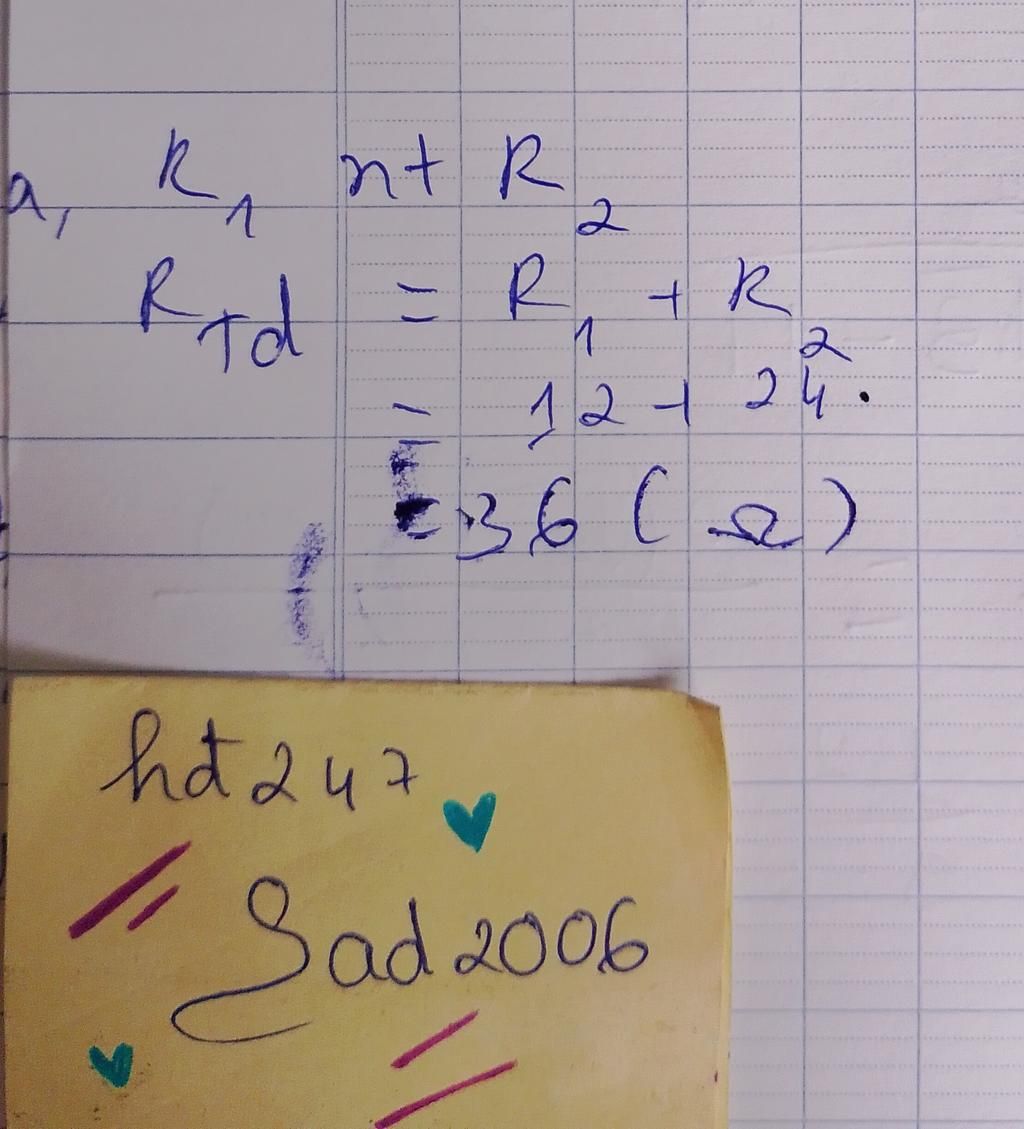 a, R₁ nt R₂
R_Td = R₁ + R₂
= 12 + 24.
= 36 (Ω)
hdt247
Sad2006